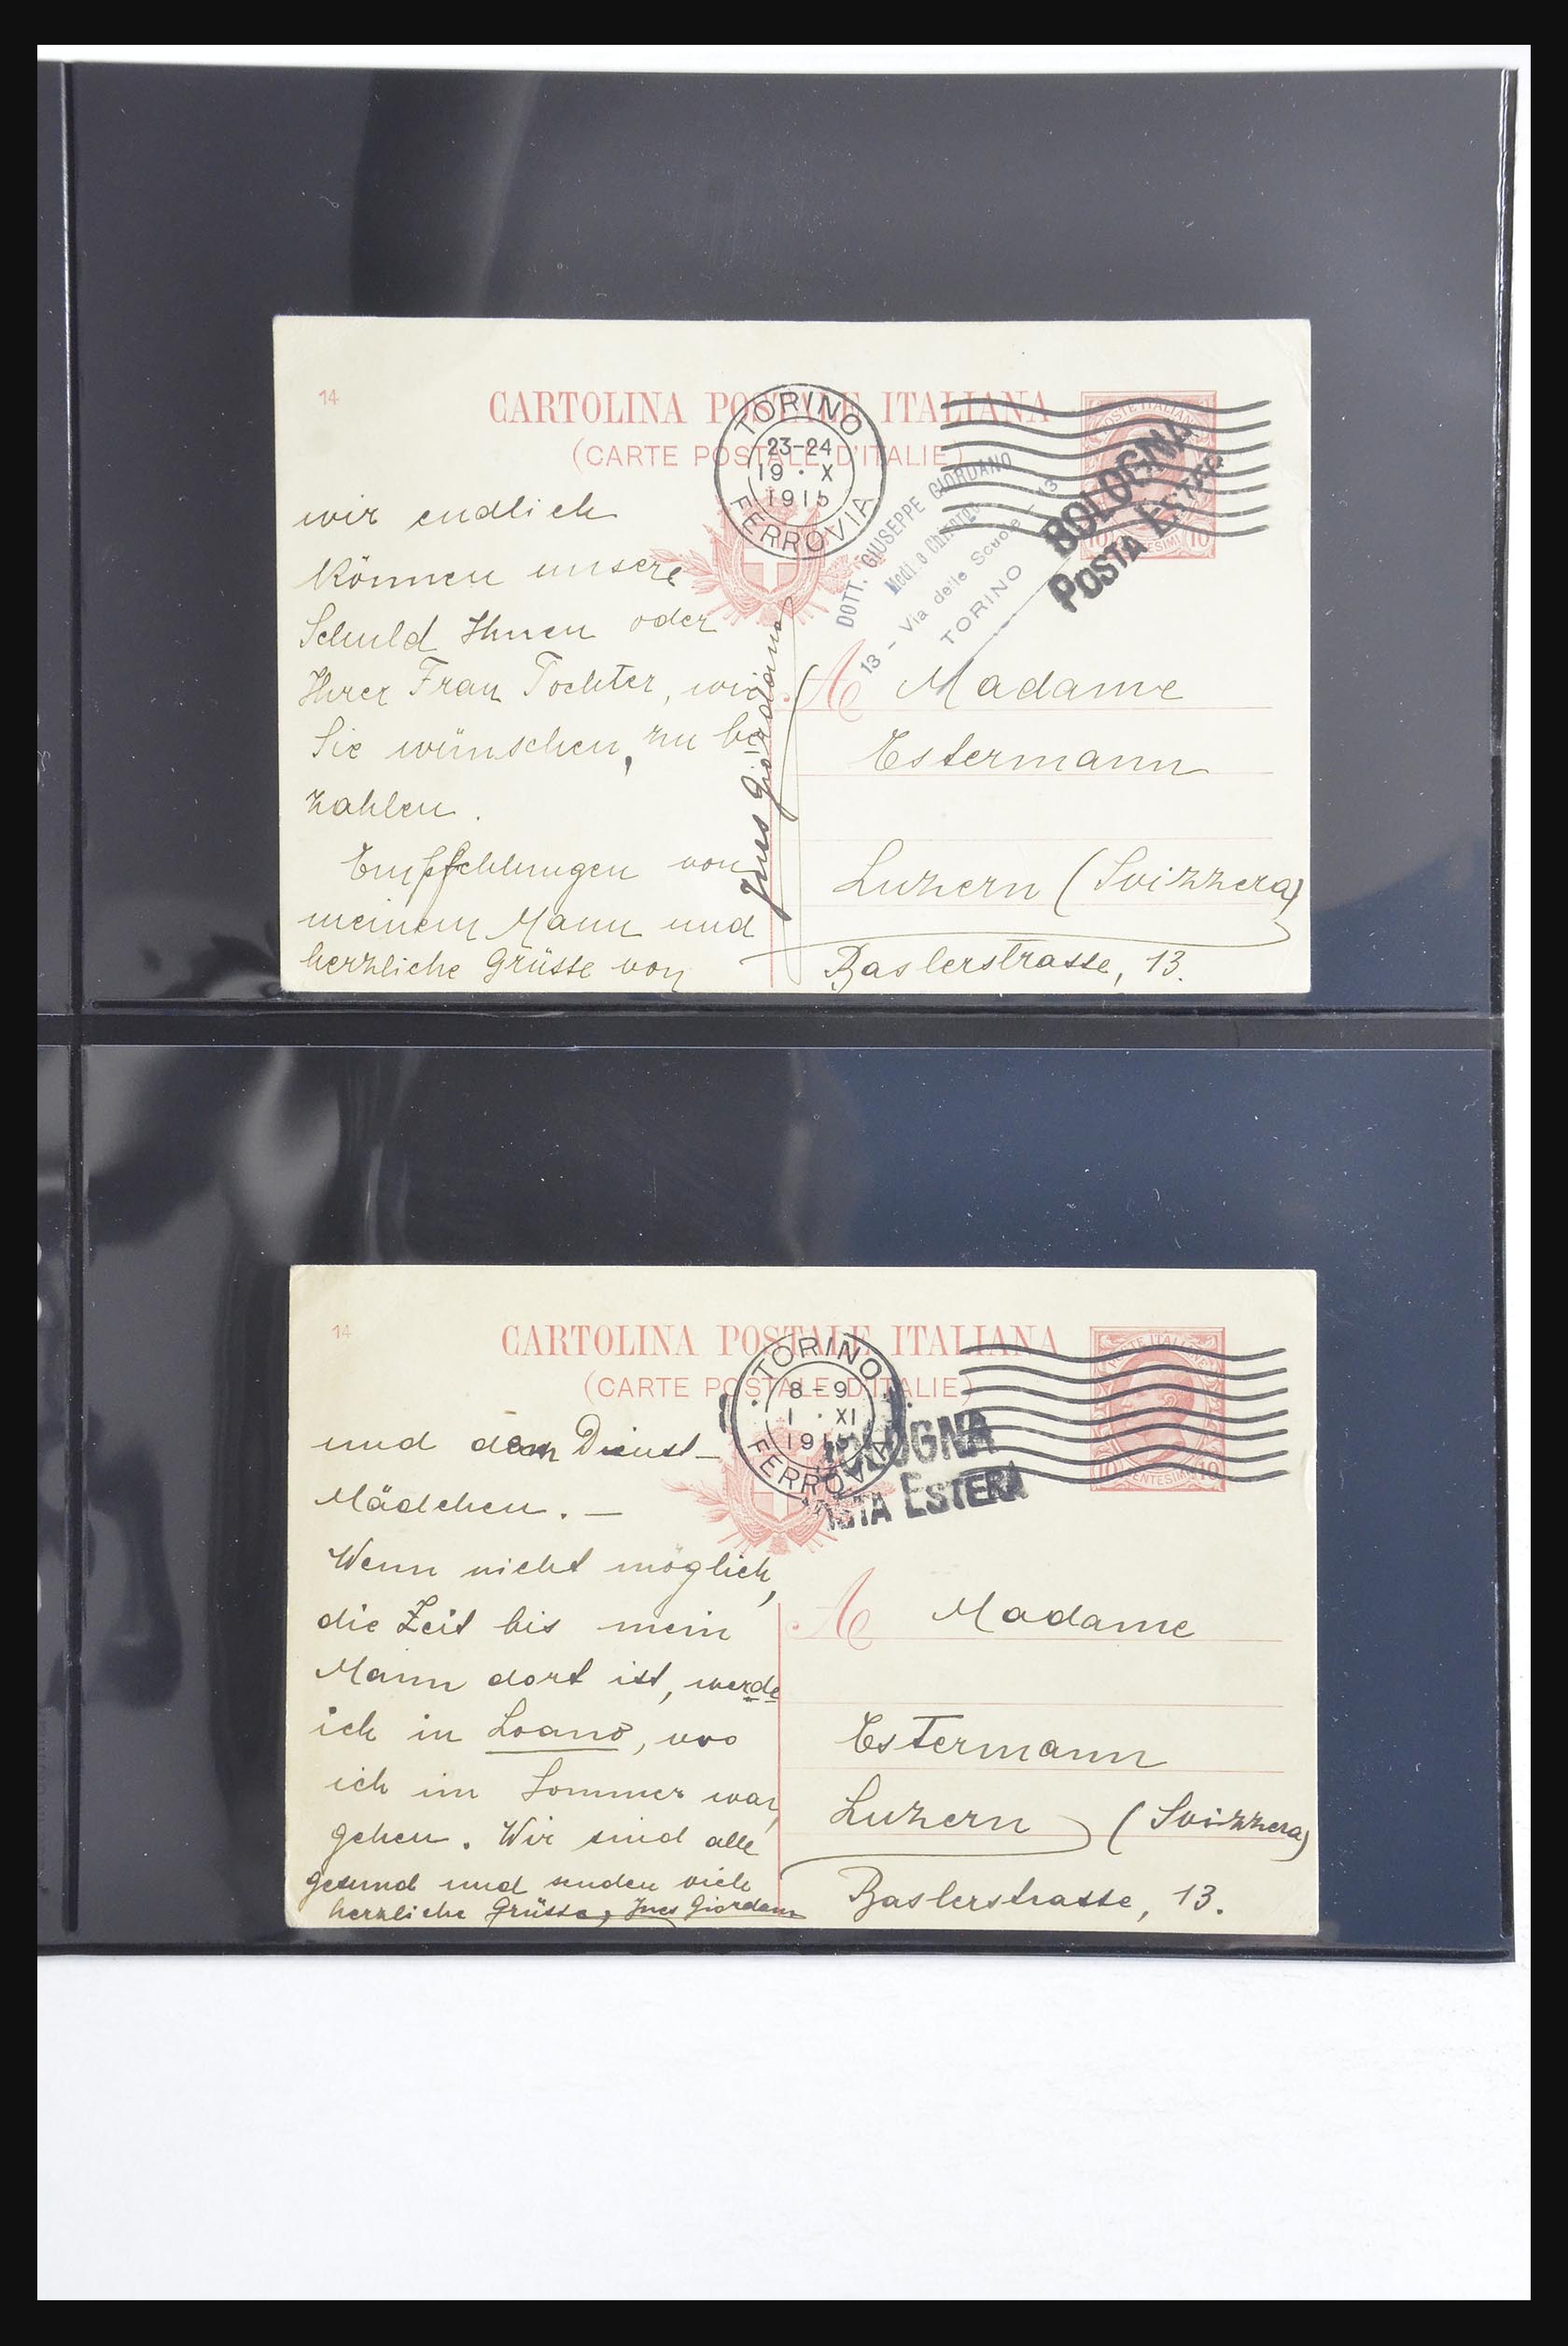 14
CARTOLINA POSTALE ITALIANA
(CARTE POSTALE D'ITALIE)
TORINO
23-24
19 · X
1915
FERROVIA
POSTE ITALIANE
CENTESIMI 10
BOLOGNA
POSTA ESTERA
DOTT. GIUSEPPE GIORDANO
Medico Chirurgo
13 - Via delle Scuole - 13
TORINO
wir endlich
können unsere
Schuld Ihnen oder
Ihrer Frau Tochter, wie
Sie wünschen, zu be
zahlen.
Empfehlungen von
meinem Mann und
herzliche Grüsse von
Ines Giordano
A Madame
Estermann
Luzern (Svizzera)
Baslerstrasse, 13.
14
CARTOLINA POSTALE ITALIANA
(CARTE POSTALE D'ITALIE)
TORINO
8-9
1 · XI
1915
FERROVIA
POSTE ITALIANE
10 CENTESIMI 10
BOLOGNA
STA ESTERA
und dem Dienst-
Mädchen. —
Wenn nicht möglich,
die Zeit bis mein
Mann dort ist, werde
ich in Loano, wo
ich im Sommer war,
gehen. Wir sind alle
gesund und senden viele
herzliche Grüsse, Ines Giordano
A Madame
Estermann
Luzern (Svizzera)
Baslerstrasse, 13.